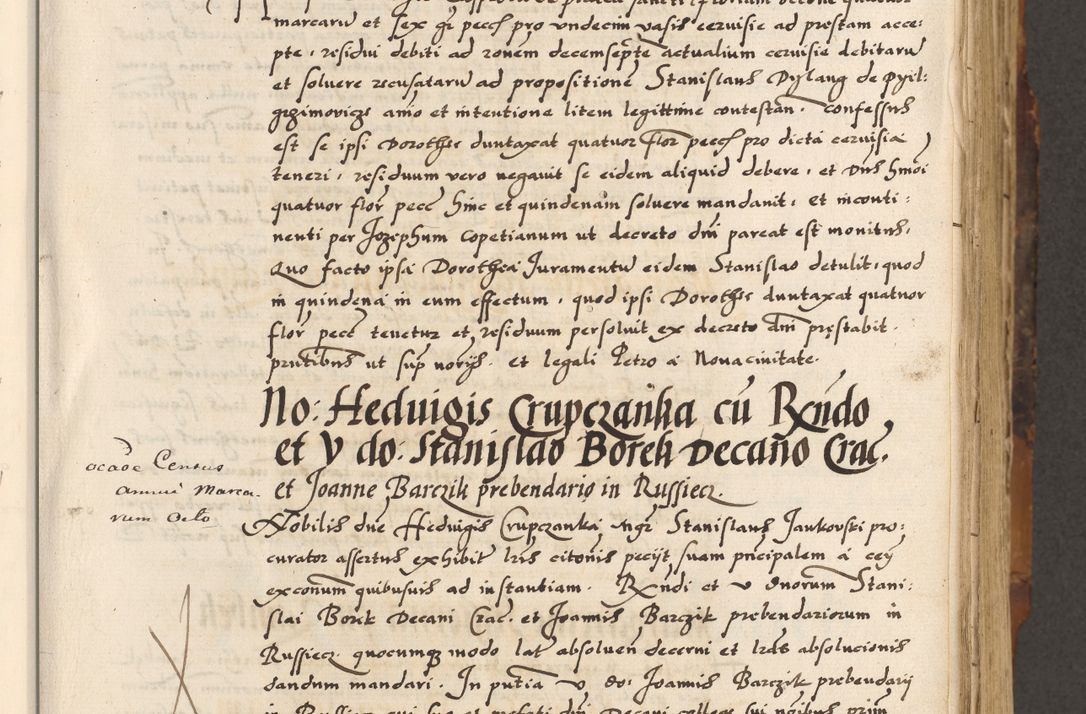 marcarũ et Ex gr pecē pro vndecim vasis ceruisie ad prestam acce:
pte, residui debiti ad ronem decemsepte actualium ceruisie debitarũ
et soluere recusatarũ ad propositionē Stanislaus Dyslang de Pyil:
grzimovicze aīo et intentione litem legittime contestan. confessus
est se ipsi Dorothee duntaxat quatuor flor pecē pro dicta ceruisia
teneri, residuum vero negauit se eidem aliquid debere, et Dns hmoi
quatuor flor pece hinc et quindenam soluere mandauit, et inconti:
nenti per Jozephum Copetianum ut decreto dni pareat est monitus.
Quo facto ipsa Dorothea Juramentũ eidem Stanislao detulit, quod
in quindena in eum effectum, quod ipsi Dorothee duntaxat quatuor
flor pecē tenetur et residuum persoluit ex decreto dni pręstabit.
pntibus ut sup norijs. et legali Petro a Novacivitate.
No: Heduigis Crupczanka cũ Rxndo
et V do: Stanislao Borek Decano Crac.
et Joanne Barczik prebendario in Russiecz.
ocaõe Census
annui Marca
rum Octo
Nobilis dne Heduigis Crupczanka mgr Stanislaus Jankovski pro:
curator assertus exhibit lris citonis pecijt suam principalem a cẽ
exconum quibusuis ad instantiam. Rxndi et v dnorum Stani:
slai Borek Decani Crac. et Joannis Barczik prebendariorum in
Russiecz quocumqz modo lat absoluen decerni et lras absolucionis
dandum mandari. In putia v do: Joannis Barczik prebendarij
in Russiecz qui suo et prefati dni Decani collegę sui noibus prim